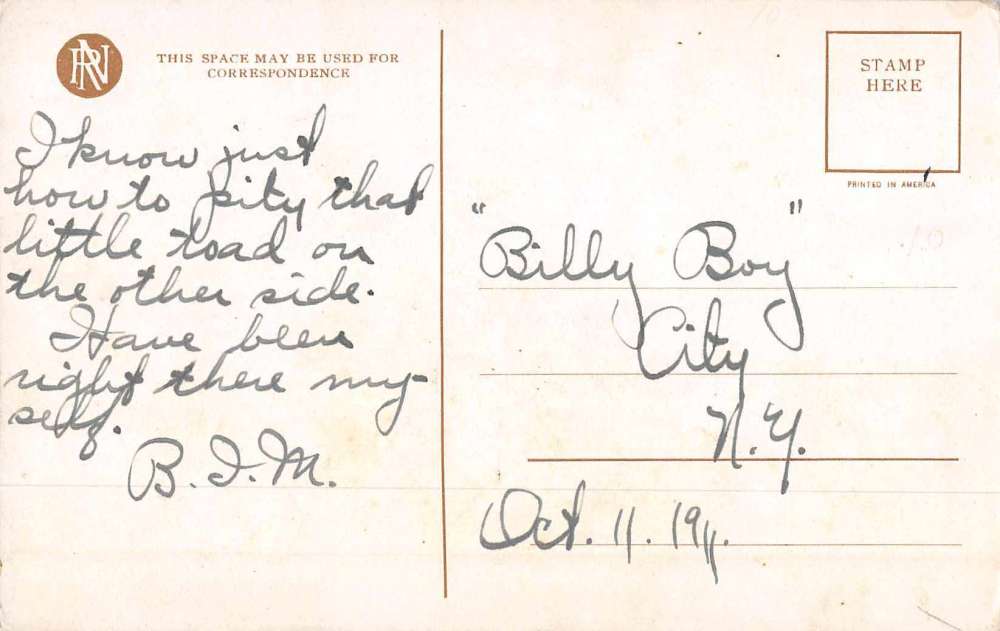 RN
THIS SPACE MAY BE USED FOR
CORRESPONDENCE
STAMP
HERE
PRINTED IN AMERICA
I know just
how to pity that
little toad on
the other side.
Have been
right there my-
self.
B. I. M.
"Billy Boy"
City
N. Y.
Oct. 11. 1911.